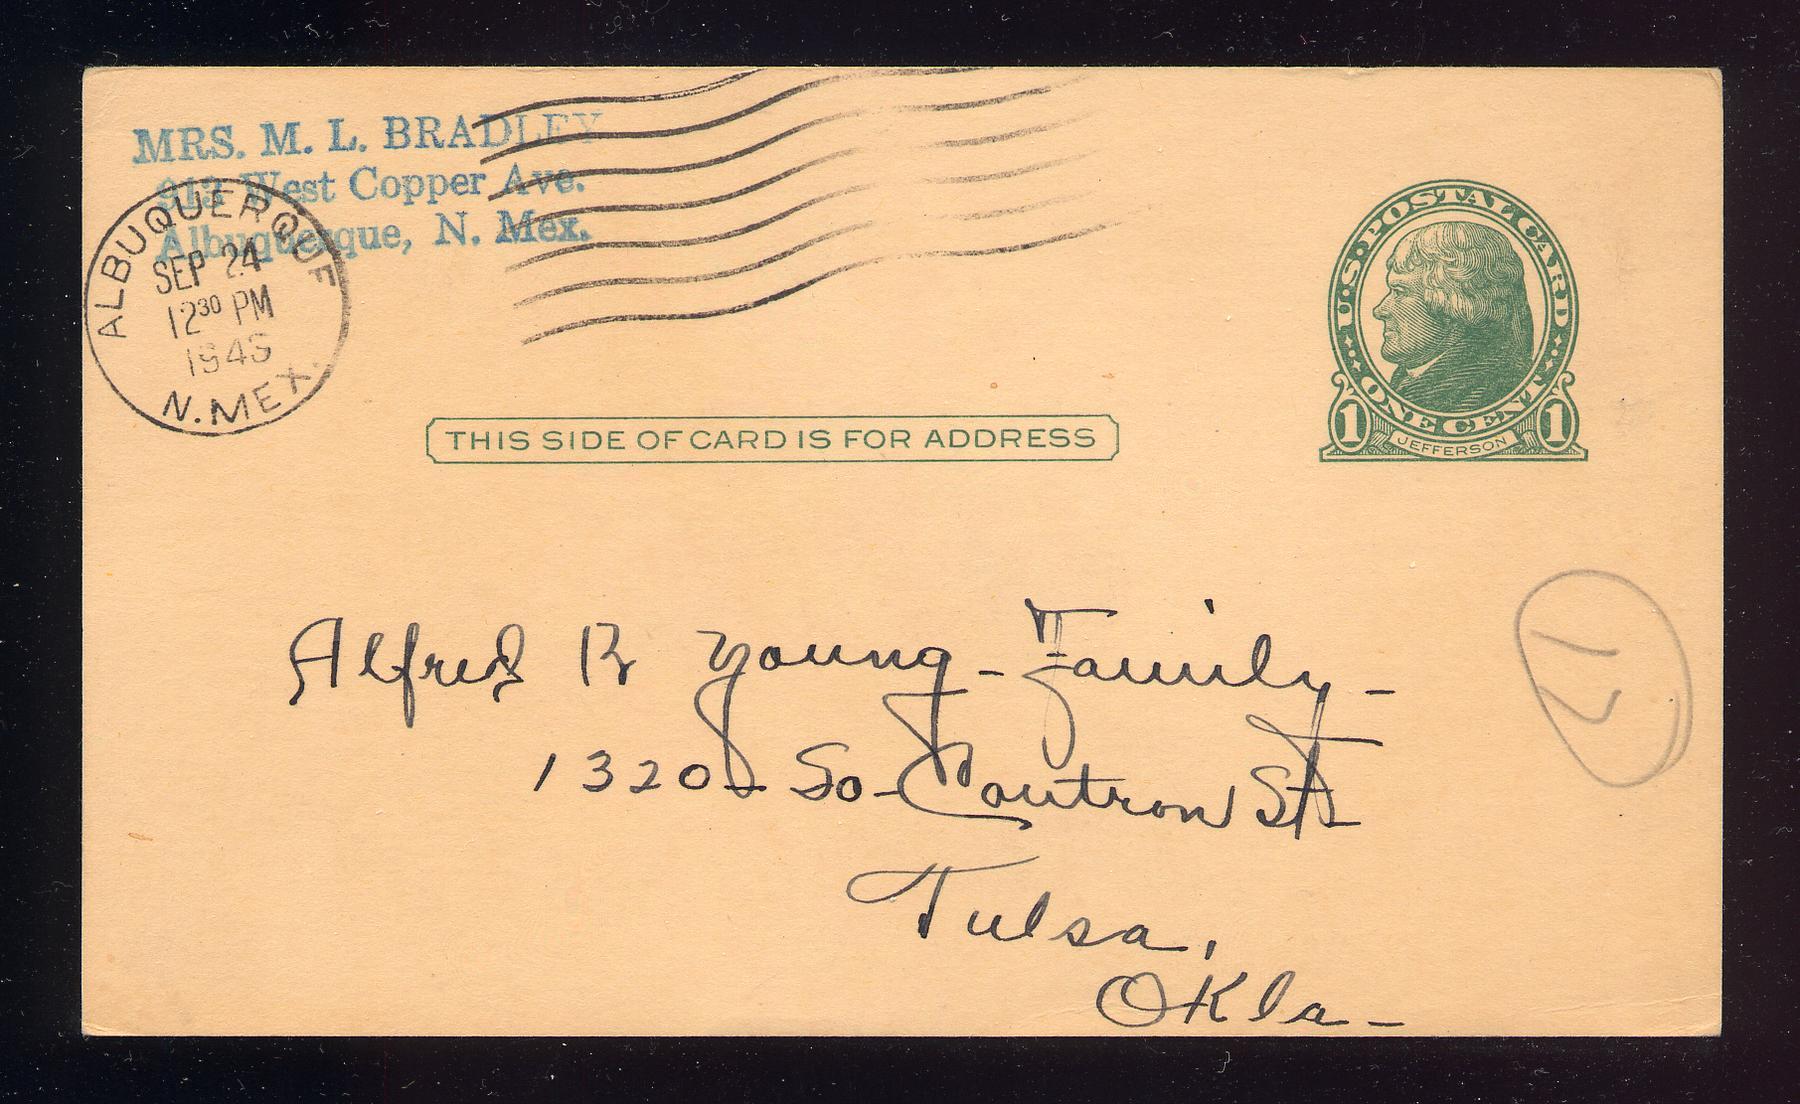 MRS. M. L. BRADLEY
913 West Copper Ave.
Albuquerque, N. Mex.
ALBUQUERQUE
SEP 24
12 30 PM
1945
N. MEX.
U.S. POSTAL CARD
ONE CENT
1 JEFFERSON 1
THIS SIDE OF CARD IS FOR ADDRESS
Alfred R Young - Family -
1320 - So - Coutron St -
Tulsa,
Okla -
17